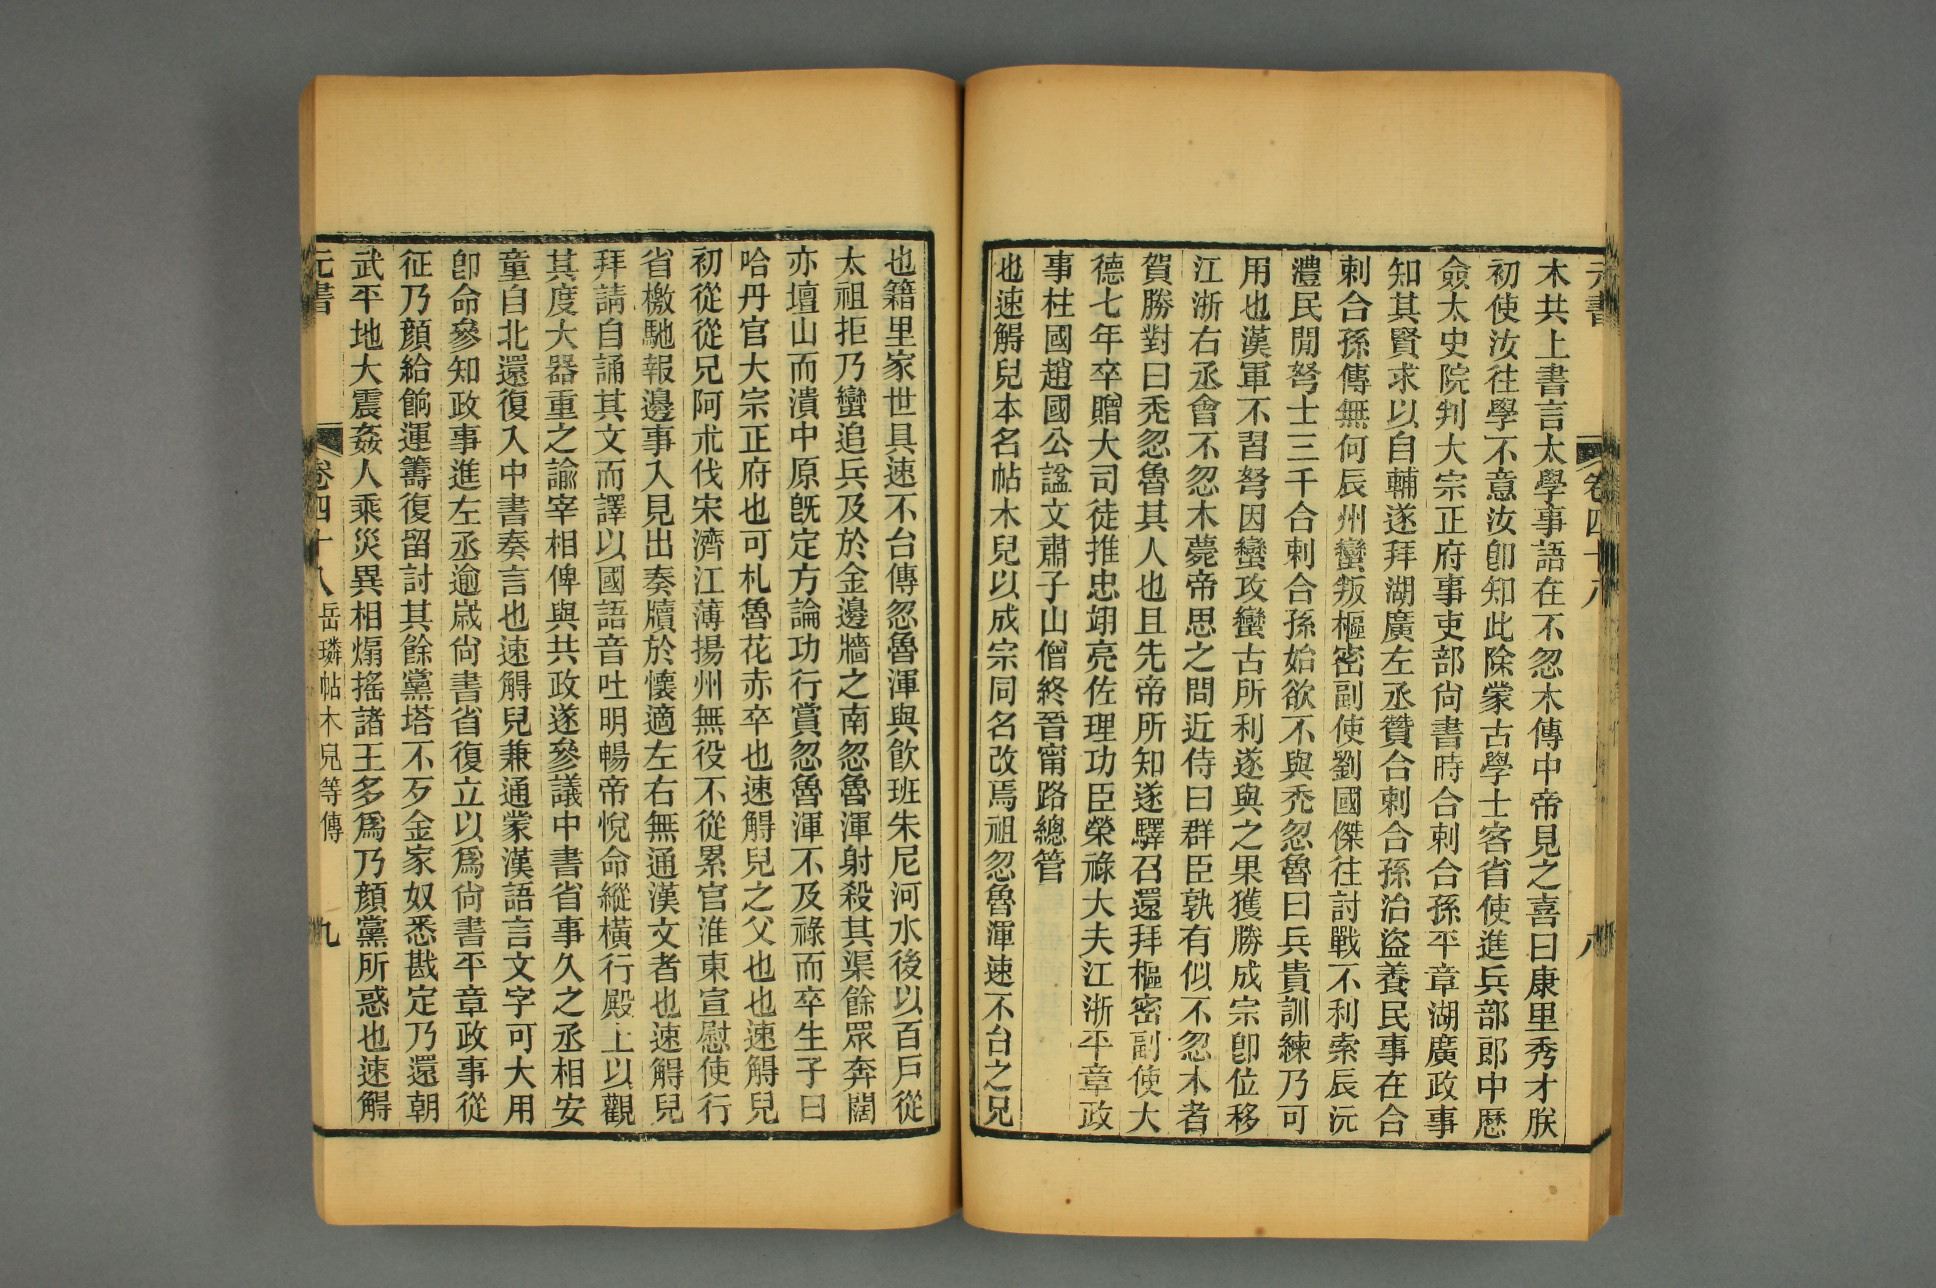 元書
卷四十八
八
木共上書言太學事語在不忽木傳中帝見之喜曰康里秀才朕
初使汝往學不意汝卽知此除蒙古學士客省使進兵部郎中歷
僉太史院判大宗正府事吏部尙書時合剌合孫平章湖廣政事
知其賢求以自輔遂拜湖廣左丞贊合剌合孫治盜養民事在合
剌合孫傳無何辰州蠻叛樞密副使劉國傑往討戰不利索辰沅
澧民閒弩士三千合剌合孫始欲不與禿忽魯曰兵貴訓練乃可
用也漢軍不習弩因蠻攻蠻古所利遂與之果獲勝成宗卽位移
江浙右丞會不忽木薨帝思之問近侍曰群臣孰有似不忽木者
賀勝對曰禿忽魯其人也且先帝所知遂驛召還拜樞密副使大
德七年卒贈大司徒推忠翊亮佐理功臣榮祿大夫江浙平章政
事柱國趙國公諡文肅子山僧終晉甯路總管
也速䚟兒本名帖木兒以成宗同名改焉祖忽魯渾速不台之兄
也籍里家世具速不台傳忽魯渾與飮班朱尼河水後以百戶從
太祖拒乃蠻追兵及於金邊牆之南忽魯渾射殺其渠餘眾奔闊
亦壇山而潰中原旣定方論功行賞忽魯渾不及祿而卒生子曰
哈丹官大宗正府也可札魯花赤卒也速䚟兒之父也也速䚟兒
初從從兄阿朮伐宋濟江薄揚州無役不從累官淮東宣慰使行
省檄馳報邊事入見出奏牘於懷適左右無通漢文者也速䚟兒
拜請自誦其文而譯以國語音吐明暢帝悅命縱橫行殿上以觀
其度大器重之諭宰相俾與共政遂參議中書省事久之丞相安
童自北還復入中書奏言也速䚟兒兼通蒙漢語言文字可大用
卽命參知政事進左丞逾歲尙書省復立以爲尙書平章政事從
征乃顔給餉運籌復留討其餘黨塔不歹金家奴悉戡定乃還朝
武平地大震姦人乘災異相煽搖諸王多爲乃顔黨所惑也速䚟
元書
卷四十八
岳璘帖木兒等傳
九